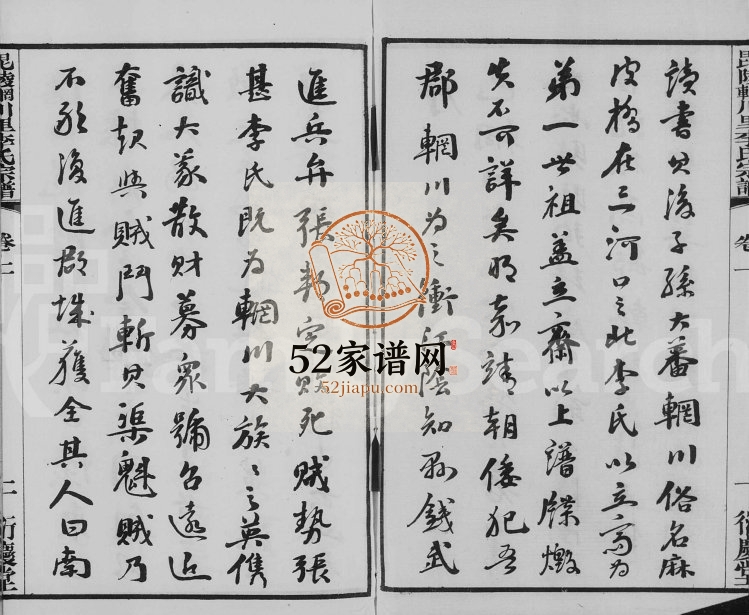 讀書其後子孫大蕃輞川俗名麻
皮橋在三河口之北李氏以立齋為
第一世祖蓋立齋以上譜牒燬
失不可詳矣明嘉靖朝倭犯吾
郡輞川為之衝江陰知縣錢武
毘陵輞川里李氏宗譜
卷一
一
衍慶堂
進兵弁張邦定賤死賊勢張
甚李氏既為輞川大族之英儁
識大義散財募眾號召遠近
奮起與賊鬥斬其渠魁賊乃
不敢復進郡城獲全其人曰南
毘陵輞川里李氏宗譜
二
衍慶堂
52家谱网
52jiapu.com